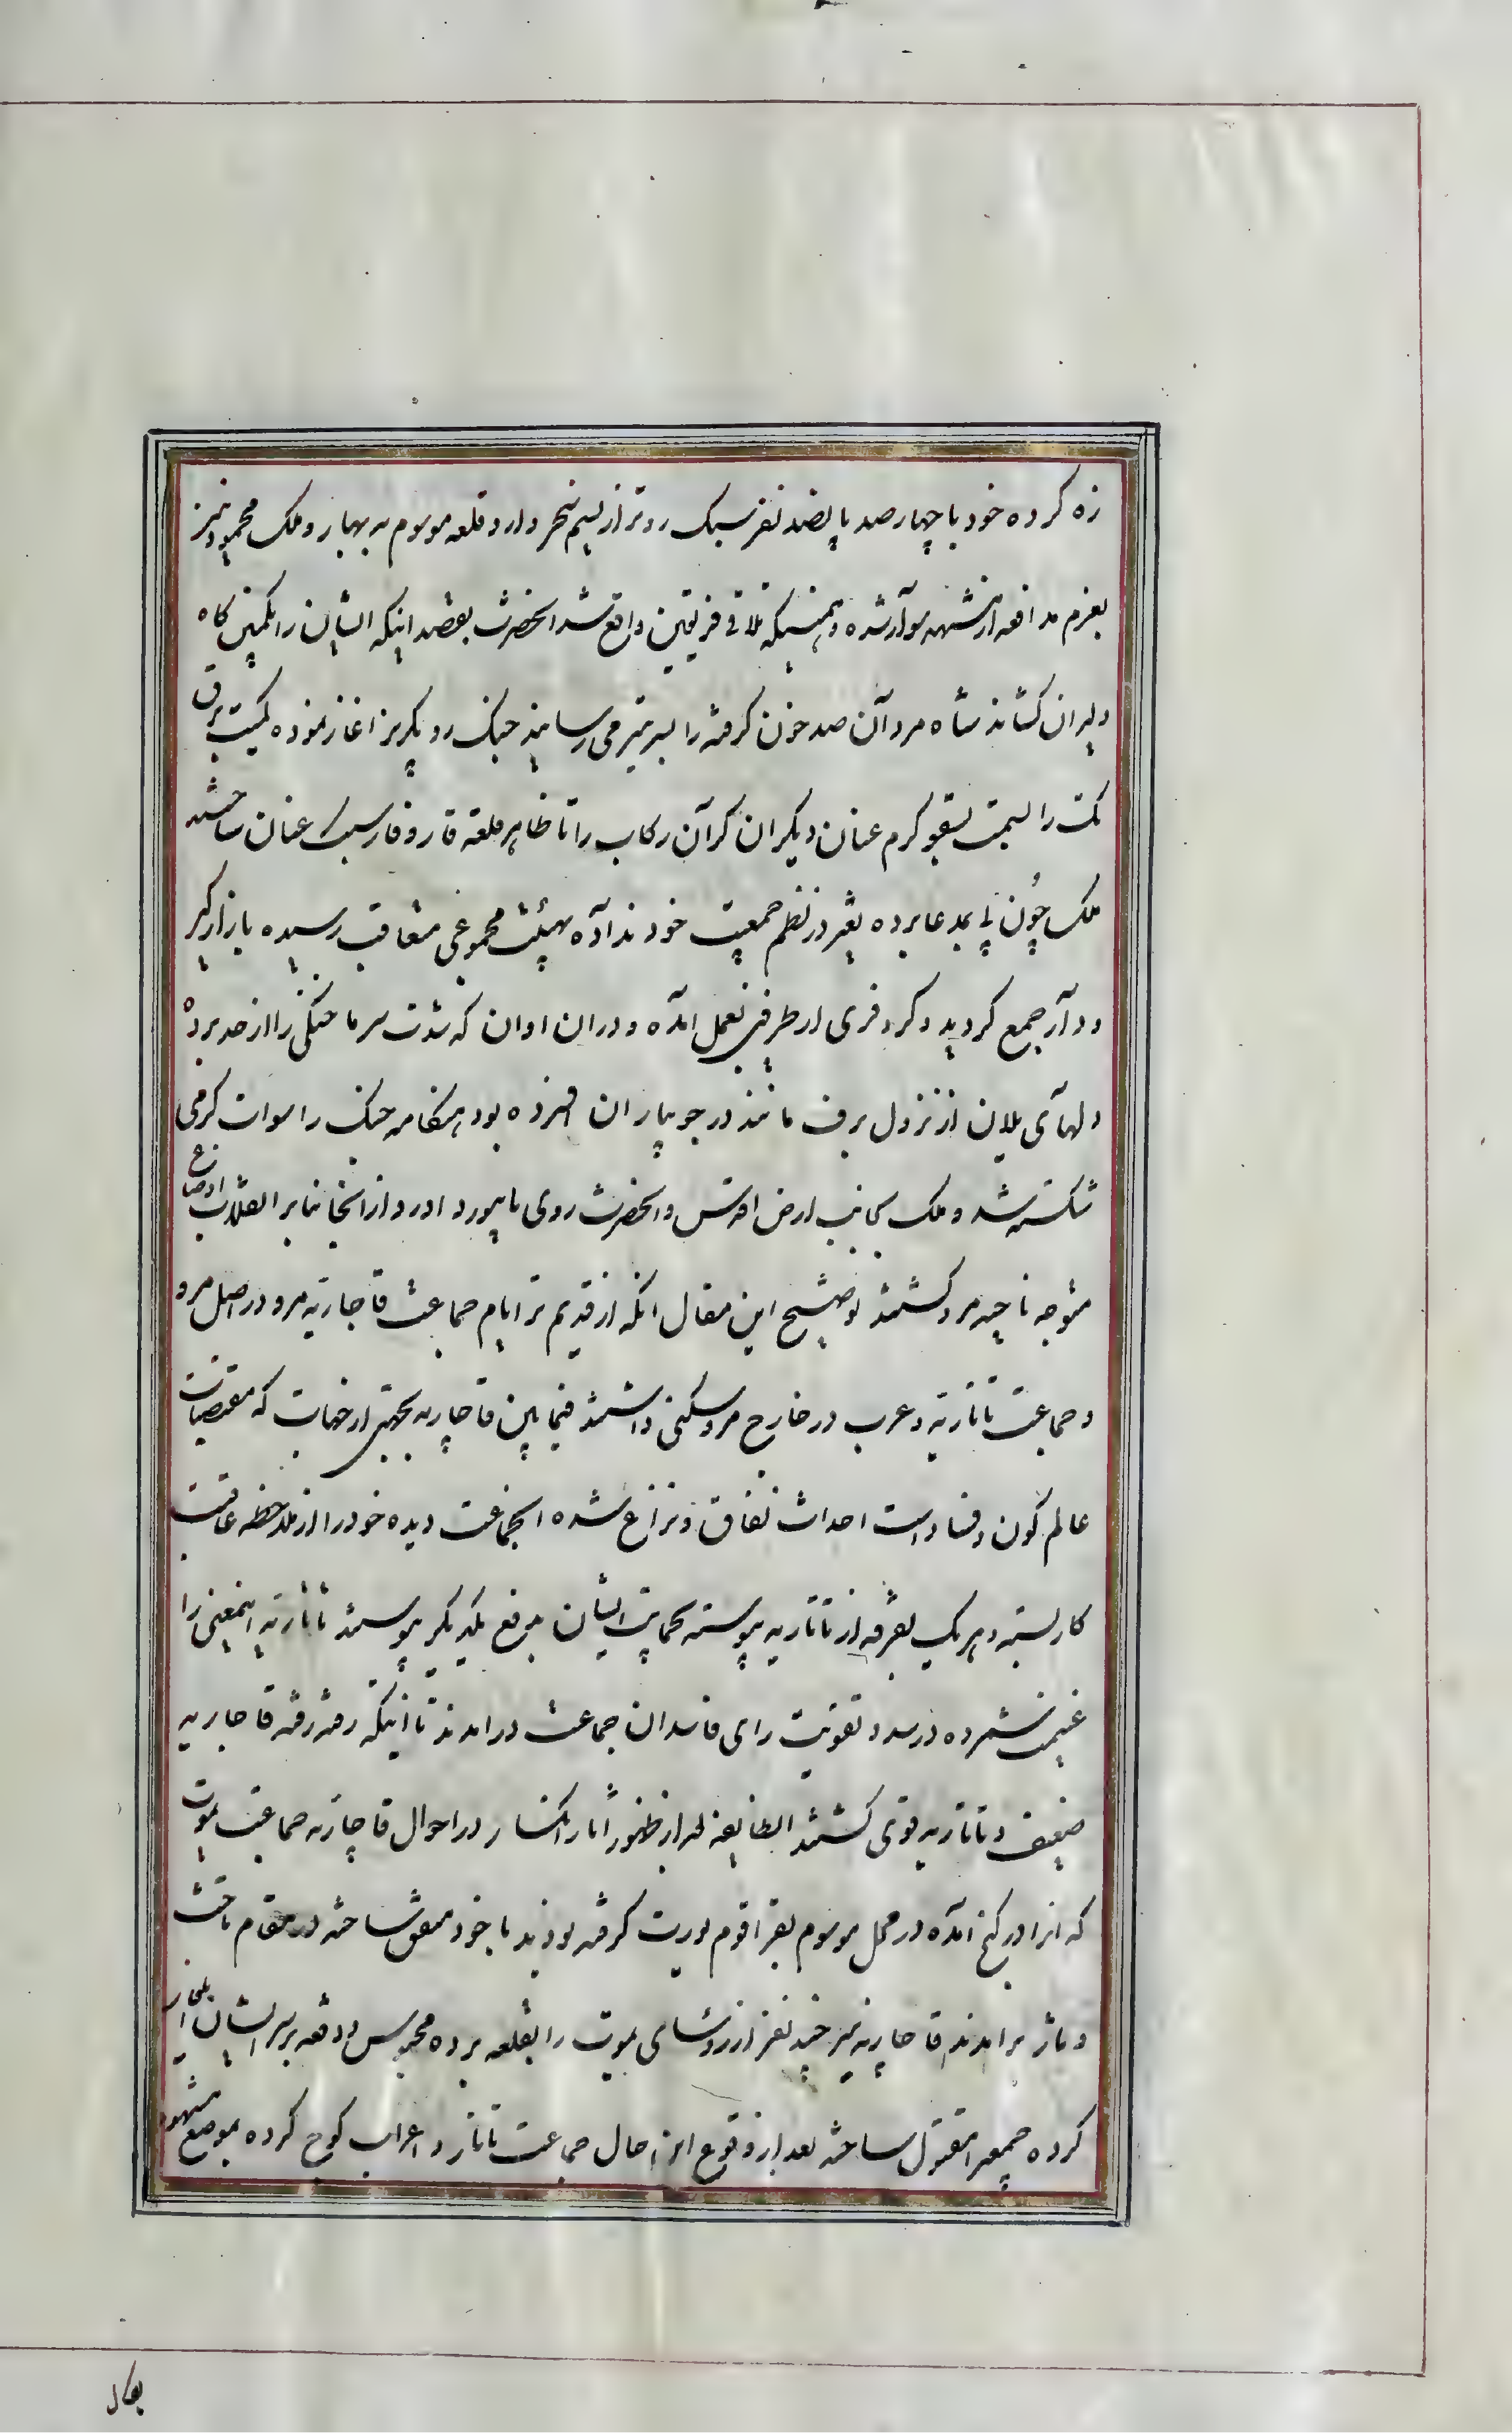 زه کرده خود با چهارصد پانصد نفر سبک روتر از نسیم سحر وارد قلعه موسوم به بهار و ملک محمود نیز
بعزم مدافعه از مشهد سوار شده و همینکه تلاقی فریقین واقع شد انحضرت بقصد اینکه ایشان را بکمین کاه
دلیران کشاند شاه مردان صد خون کرفته را بسر تیر می رسانید جنک رو بکریز اغاز نموده کمیت برق
تک را بسمت یقو کرم عنان و دیکران کران رکاب را تا ظاهر قلعه قار و قار سبک عنان ساختند
ملک چون پی بمدعا برده تغیر در نظم جمعیت خود نداده بهیئت مجموعی متعاقب رسیده بازار کیر
و دار جمع کردید و کر و فری از طرفین بعمل امده و در ان اوان که شدت سرما خنکی را از حد برده
دلهای یلان از نزول برف مانند در جویباران افسرده بود هنکامه جنک را سوات کرمی
شکسته شد و ملک بجانب ارض اقدس و انحضرت روی بابیورد اورد و از انجا بنابر انقلاب اوضاع
متوجه ناحیه مرو کشتند توضیح این مقال انکه از قدیم تر ایام جماعت قاجاریه مرو در اصل مرو
و جماعت تاتاریه و عرب در خارج مرو سکنی داشتند فیمابین قاجاریه بجهتی از جهات که مقتضیات
عالم کون و فساد است احداث نفاق و نزاع شده انجماعت دیده خود را از ملاحظه عاقبت
کار بسته و هر یک بفرقه از تاتاریه پیوسته بحمایت ایشان بدفع یکدیکر پیوستند تاتاریه اینمعنی را
غنیمت شمرده در صدد تقویت رای فاسد ان جماعت در امدند تا اینکه رفته رفته قاجاریه
ضعیف و تاتاریه قوی کشتند انطایفه بعد از ظهور اثار انکسار در احوال قاجاریه جماعت یموت
که از اورکنج امده در محل موسوم بقراقوم یورت کرفته بودند با خود متفق ساخته در مقام تاخت
و تاز برامدند قاجاریه نیز چند نفر از روسای یموت را بقلعه برده محبوس و دفعه بر سر ایشان یلغار
کرده جمعی را مقتول ساخته بعد از وقوع این حال جماعت تاتار و اعراب کوچ کرده بموضع مشهور